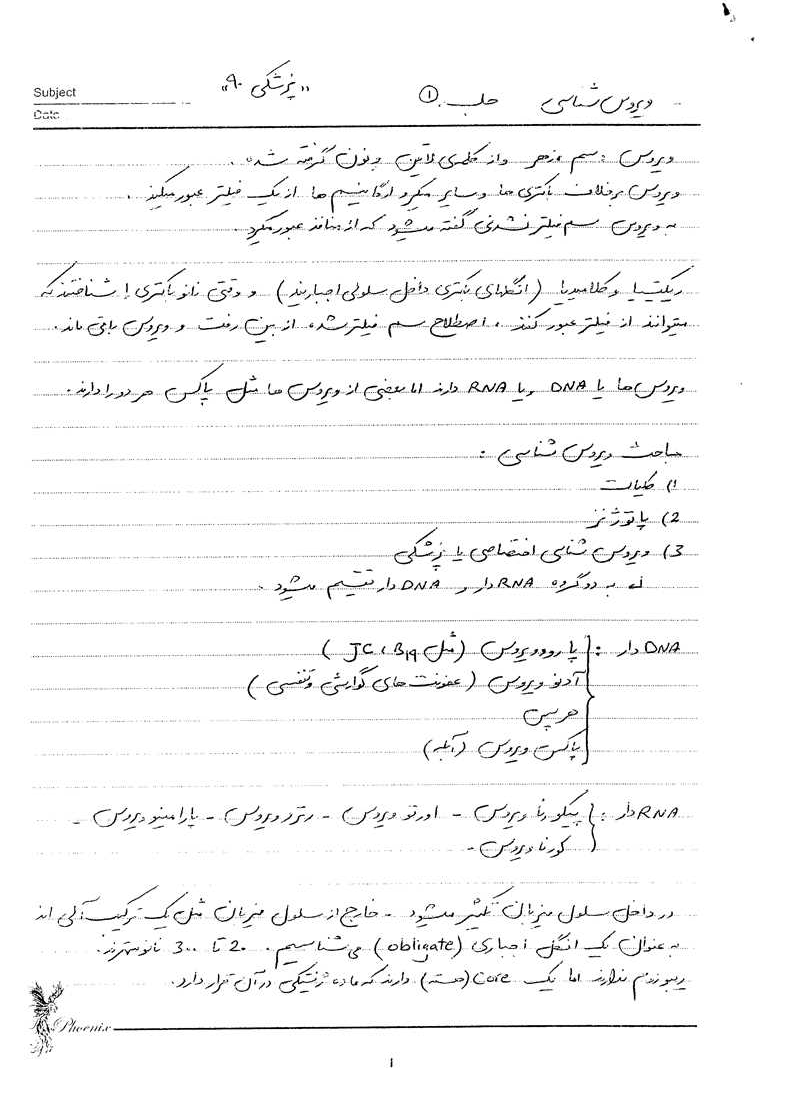 Subject
Date
ویروس شناسی جلسه ۱ «پزشکی ۹۰»
ویروس : سم و زهر و از کلمه‌ی لاتین ونون گرفته شده .
ویروس برخلاف باکتری ها و سایر میکرو ارگانیسم ها از یک فیلتر عبور میکند .
به ویروس سم فیلتر نشدنی گفته میشود که از منافذ عبور میکرد .
ریکتسیا و کلامیدیا (انگلهای باکتری داخل سلولی اجباریند) و وقتی نانو باکتری را شناختند که
میتوانند از فیلتر عبور کنند ، اصطلاح سم فیلتر شده از بین رفت و ویروس باقی ماند .
ویروس ها یا DNA و یا RNA دارند اما بعضی از ویروس ها مثل پاکس هر دو را دارند .
مباحث ویروس شناسی :
1) کلیات
2) پاتوژنز
3) ویروس شناسی اختصاصی یا پزشکی
به دو گروه RNA دار و DNA دار تقسیم میشود .
DNA دار : پاروو ویروس (مثل B19 ، JC)
آدنو ویروس (عفونت های گوارشی و تنفسی)
هرپس
پاکس ویروس (آبله)
RNA دار : پیکورنا ویروس - اورتو ویروس - رترو ویروس - پارامیکسو ویروس -
کورنا ویروس -
در داخل سلول میزبان تکثیر میشود - خارج از سلول میزبان مثل یک ترکیب آلی اند
به عنوان یک انگل اجباری (obligate) می شناسیم . 20 تا 300 نانومترند .
ریبوزوم ندارند اما یک core (هسته) دارند که ماده ژنتیکی در آن قرار دارد .
Phoenix
1